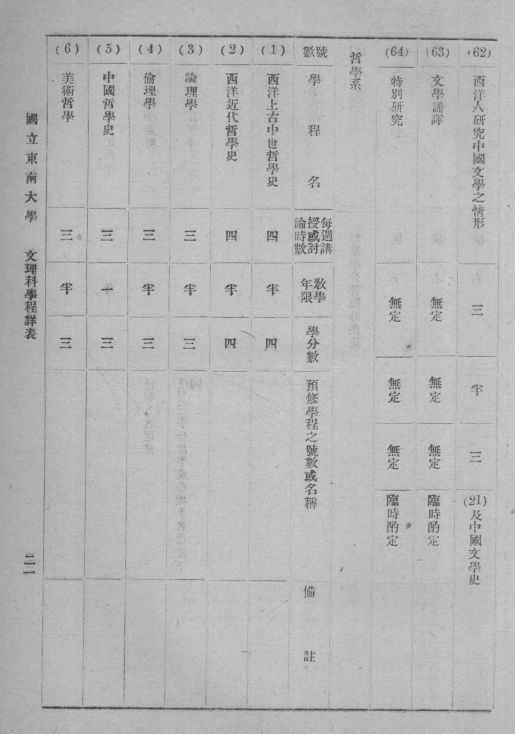 (62) 西洋人研究中國文學之情形 三 半 三 (21)及中國文學史
(63) 文學譒譯 無定 無定 無定 臨時酌定
(64) 特別研究 無定 無定 無定 臨時酌定
哲學系
號數 學程名 每週講授或討論時數 敎學年限 學分數 預修學程之號數或名稱 備註
(1) 西洋上古中世哲學史 四 半 四
(2) 西洋近代哲學史 四 半 四
(3) 論理學 三 半 三
(4) 倫理學 三 半 三
(5) 中國哲學史 三 一 三
(6) 美術哲學 三 半 三
國立東南大學 文理科學程詳表 二一